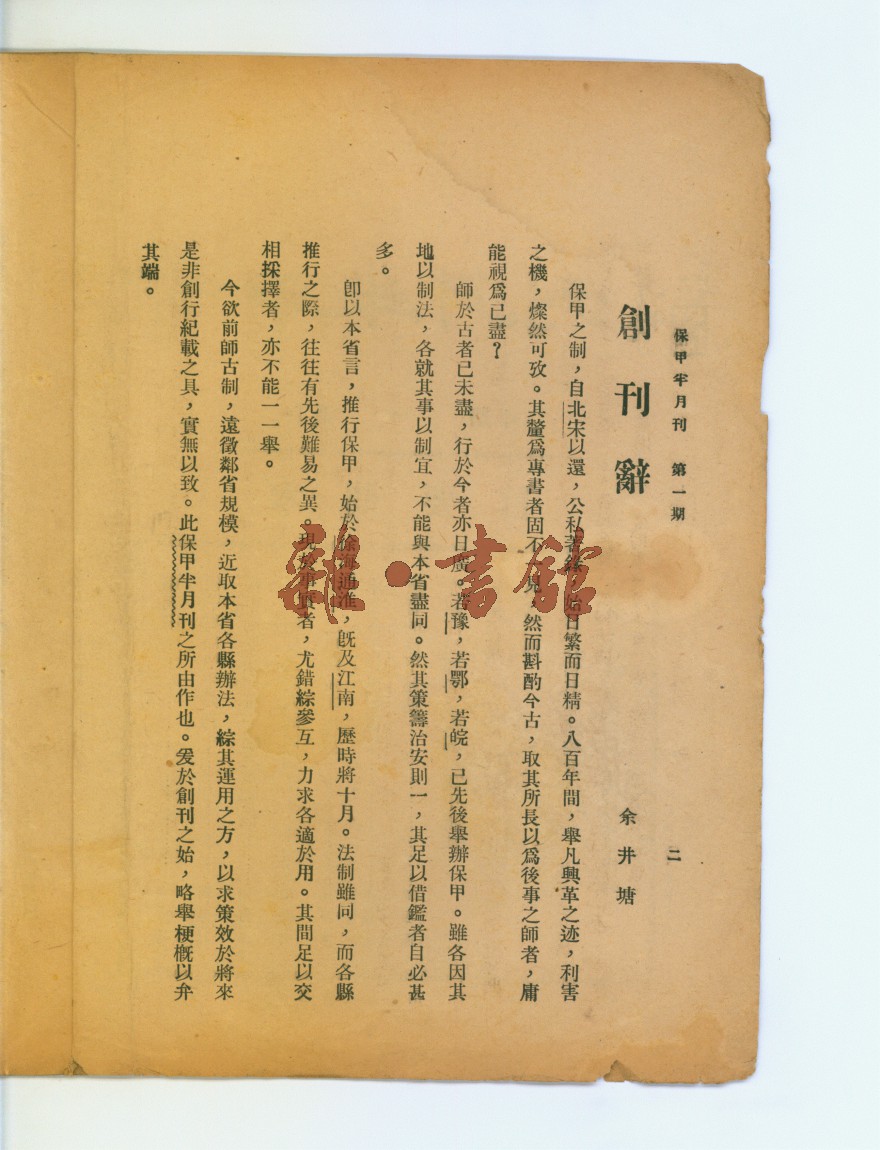 保甲半月刊　第一期
二
創刊辭
余井塘
保甲之制，自北宋以還，公私著錄，始日繁而日精。八百年間，舉凡興革之迹，利害
之機，燦然可攷。其釐爲專書者固不一見，然而斟酌今古，取其所長以爲後事之師者，庸
能視爲已盡？
師於古者已未盡，行於今者亦日廣。若豫，若鄂，若皖，已先後舉辦保甲。雖各因其
地以制法，各就其事以制宜，不能與本省盡同。然其策籌治安則一，其足以借鑑者自必甚
多。
卽以本省言，推行保甲，始於徐海通淮，旣及江南，歷時將十月。法制雖同，而各縣
推行之際，往往有先後難易之異。現於事實者，尤錯綜參互，力求各適於用。其間足以交
相採擇者，亦不能一一舉。
今欲前師古制，遠徵鄰省規模，近取本省各縣辦法，綜其運用之方，以求策效於將來
是非創行紀載之具，實無以致。此保甲半月刊之所由作也。爰於創刊之始，略舉梗槪以弁
其端。
雜·書館